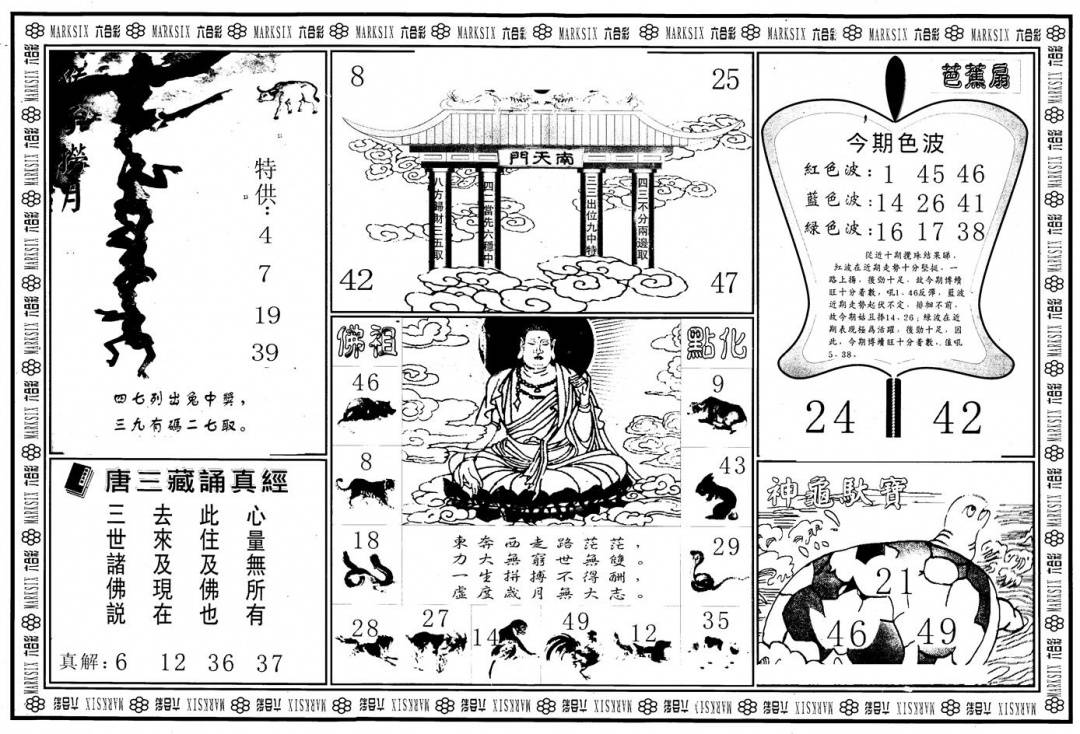 MARKSIX 六合彩 MARKSIX 六合彩 MARKSIX 六合彩 MARKSIX 六合彩 MARKSIX 六合彩 MARKSIX 六合彩 MARKSIX 六合彩 MARKSIX 六合彩 MARKSIX 六合彩 MARKSIX 六合彩
月
特供：
4
7
19
39
四七列出兔中獎，
三九有碼二七取。
8
25
南天門
八方歸財三五取
四二當先六穩中
二三出位九中特
四三不分兩邊取
42
47
芭蕉扇
今期色波
紅色波：1 45 46
藍色波：14 26 41
綠色波：16 17 38
從近十期攪珠結果睇，
紅波在近期走勢十分堅挺，一
路上揚，後勁十足，故今期博續
旺十分着數，吼1、46反彈，藍波
近期走勢起伏不定，徘徊不前，
故今期姑且捧14、26；綠波在近
期表現極爲活躍，後勁十足，因
此，今期博續旺十分着數，值吼
5、38。
24
42
佛祖
點化
46
8
18
28
27
14
49
12
9
43
29
35
東奔西走路茫茫，
力大無窮世無雙。
一生拼搏不得酬，
虛度歲月無大志。
唐三藏誦真經
心量無所有
此住及佛也
去來及現在
三世諸佛説
真解：6 12 36 37
神龜馱寶
21
46
49